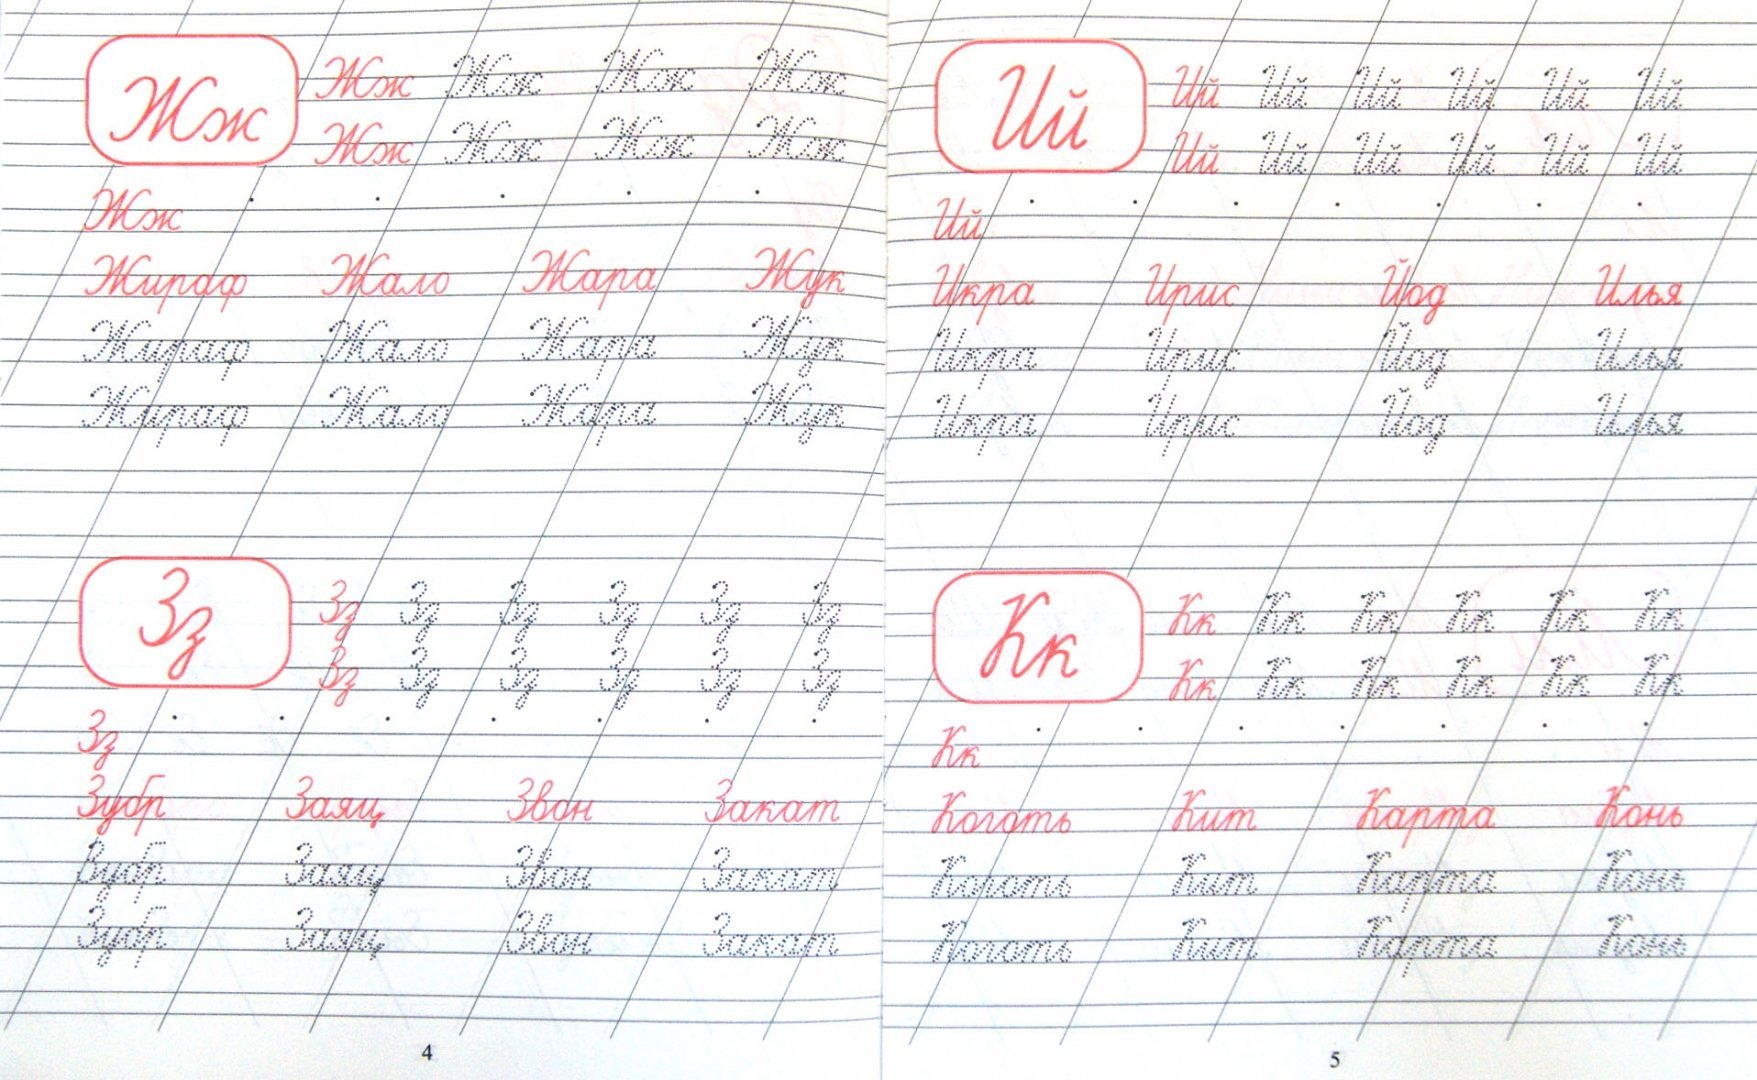 Жж Жж Жж Жж Жж
Жж Жж Жж Жж
Жж
Жираф Жало Жара Жук
Жираф Жало Жара Жук
Жираф Жало Жара Жук
Зз Зз Зз Зз Зз Зз Зз
Зз Зз Зз Зз Зз Зз
Зз
Зубр Заяц Звон Закат
Зубр Заяц Звон Закат
Зубр Заяц Звон Закат
4
Ий Ий Ий Ий Ий Ий Ий
Ий Ий Ий Ий Ий Ий
Ий
Икра Ирис Йод Илья
Икра Ирис Йод Илья
Икра Ирис Йод Илья
Кк Кк Кк Кк Кк Кк Кк
Кк Кк Кк Кк Кк Кк
Кк
Коготь Кит Карта Конь
Коготь Кит Карта Конь
Коготь Кит Карта Конь
5